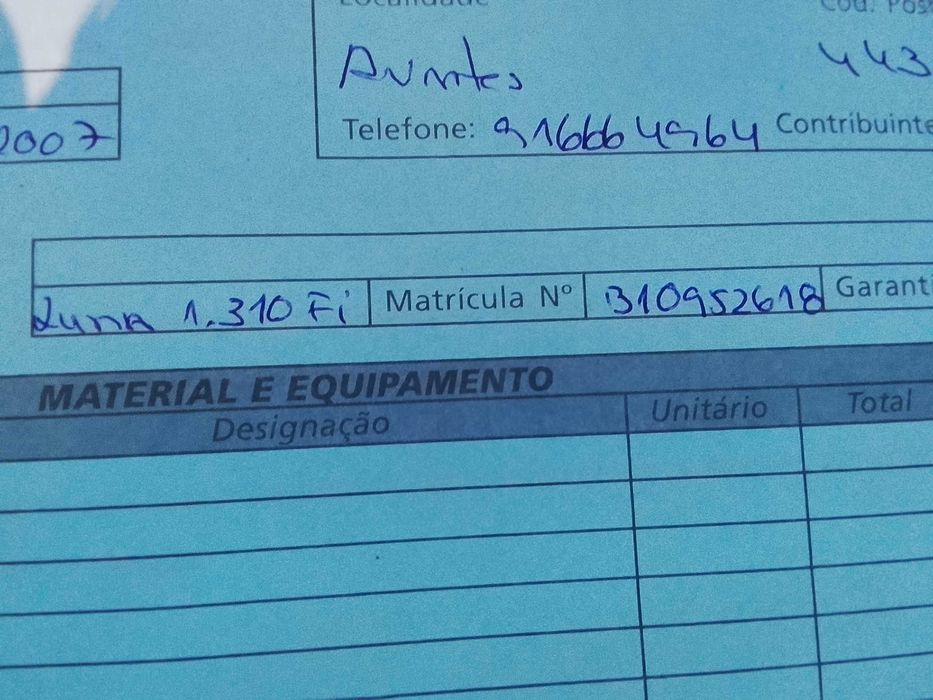 Localidade Cód. Pos
Avintes 443
2007
Telefone: 916664964 Contribuinte
Luna 1.310 Fi Matrícula Nº 310952618 Garant
MATERIAL E EQUIPAMENTO
Designação Unitário Total